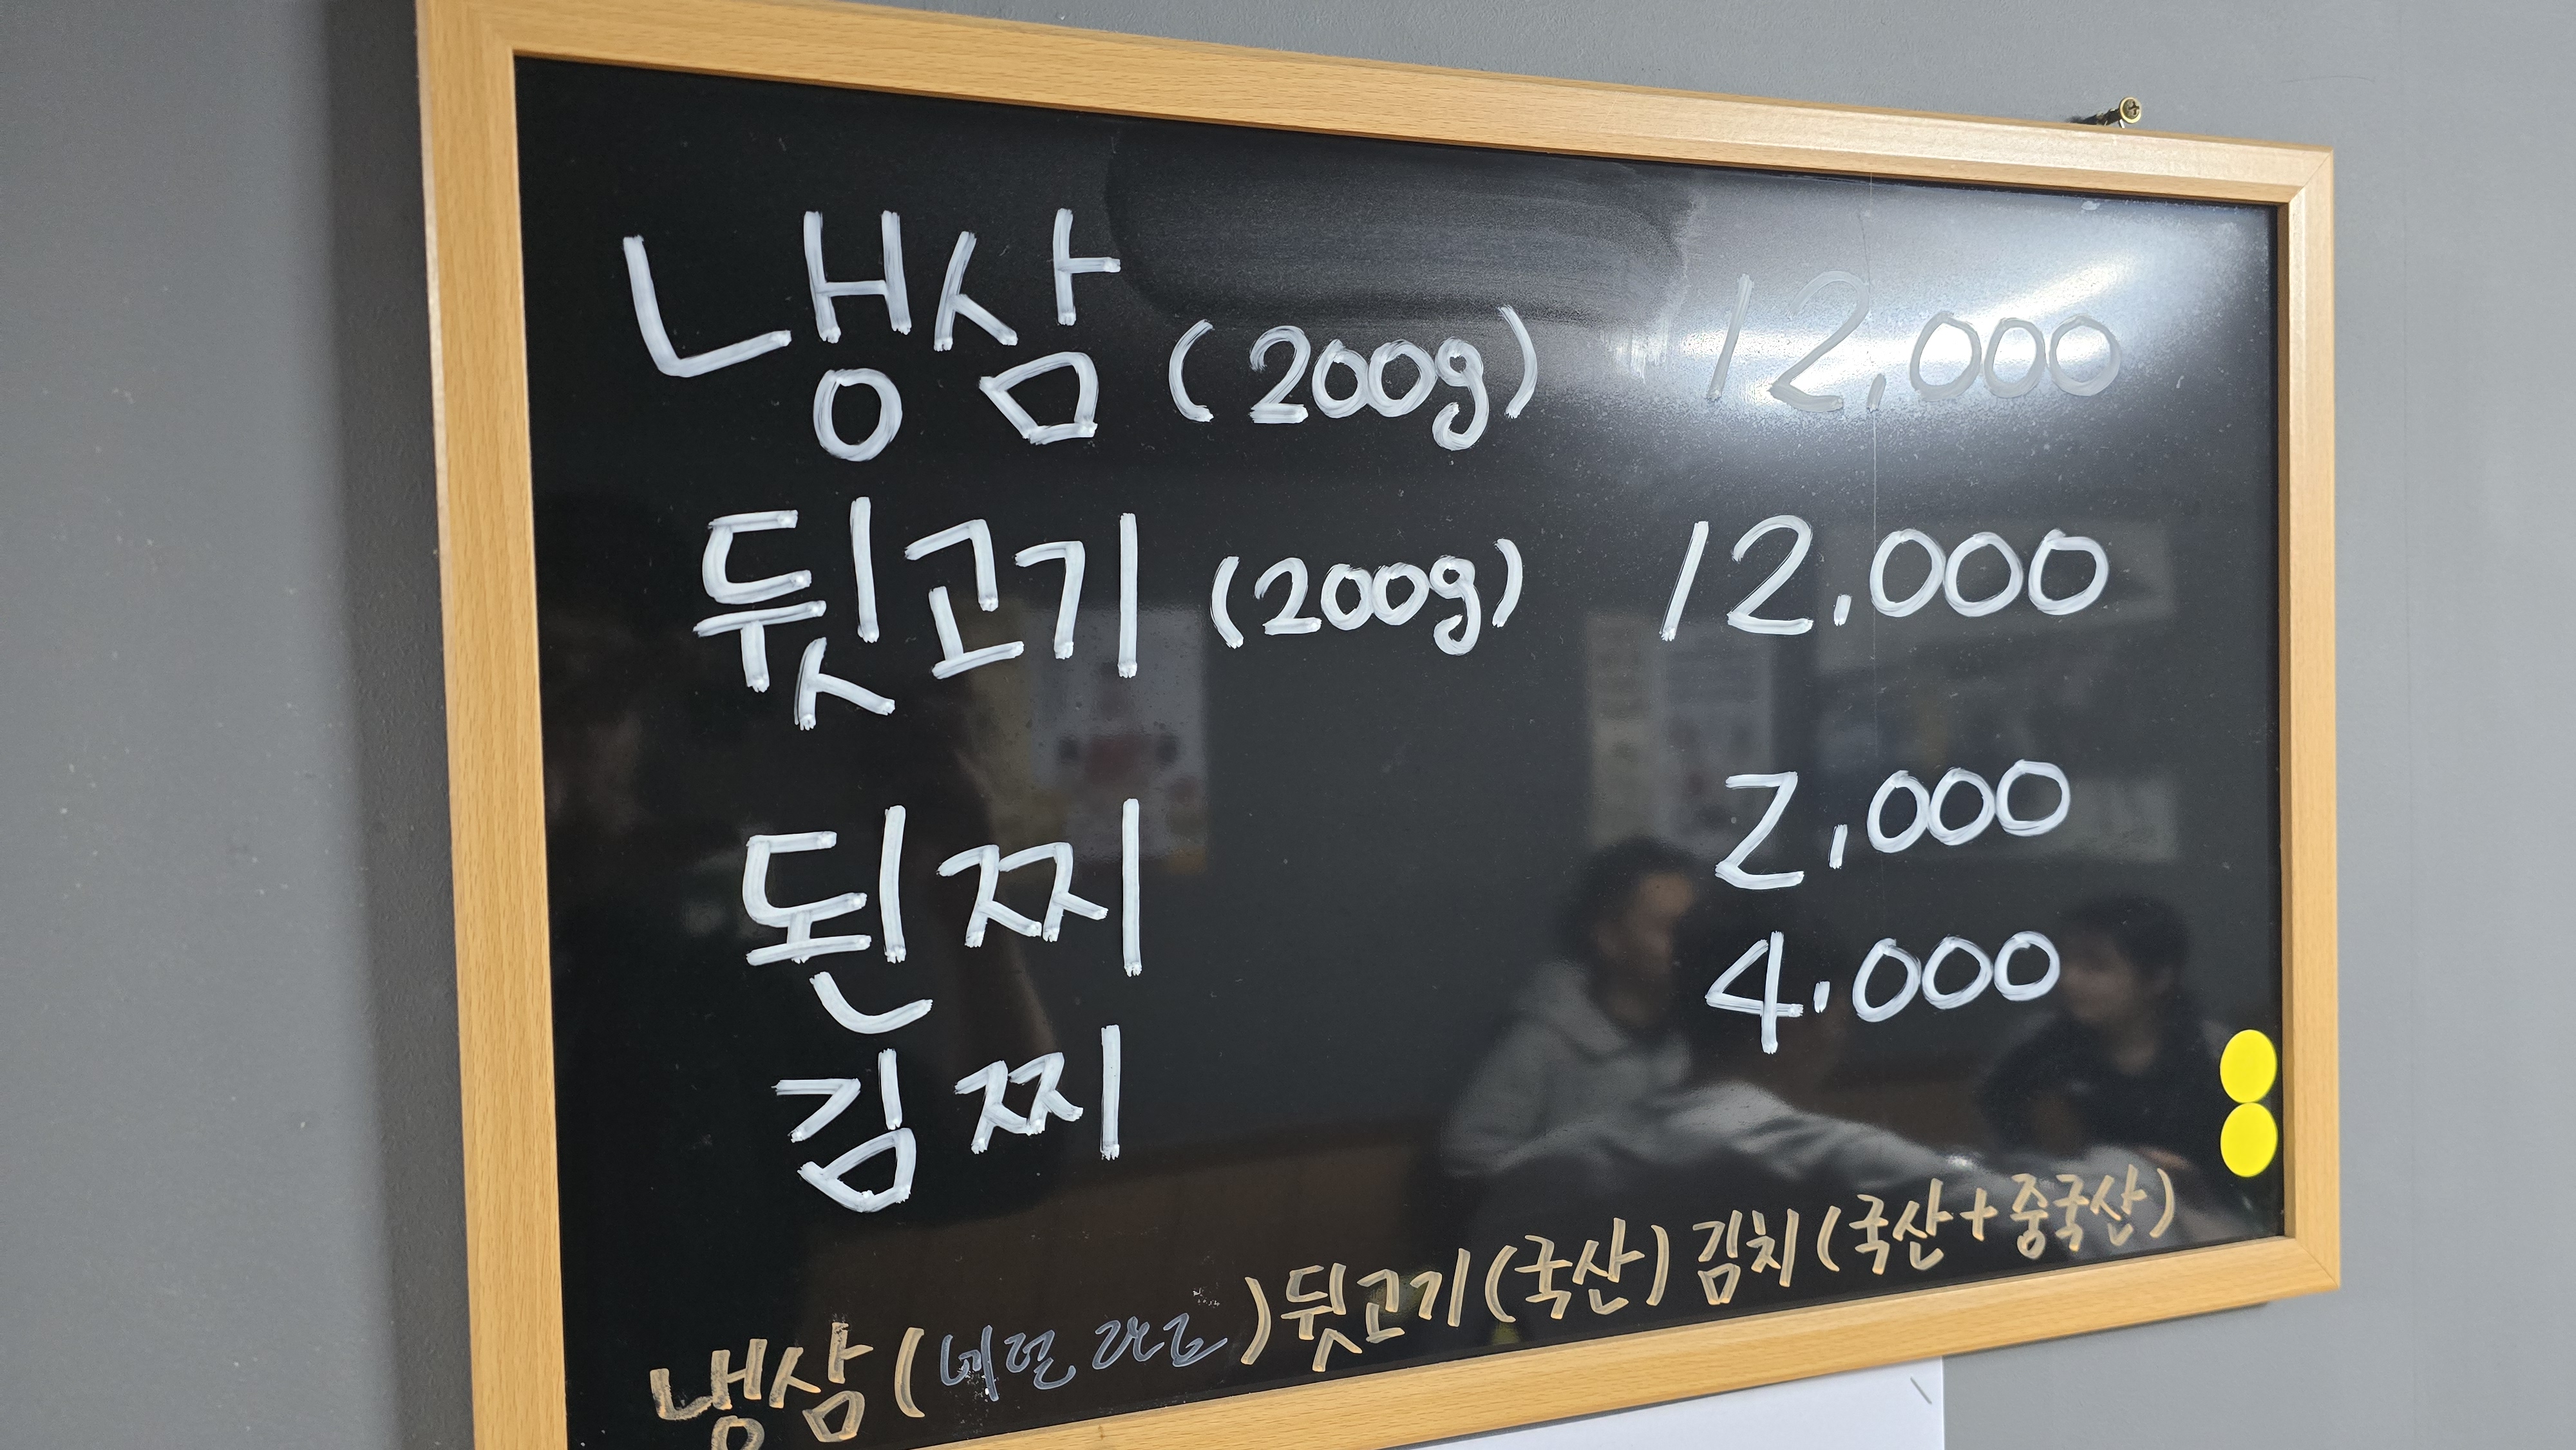 냉삼 (200g) 12,000
뒷고기 (200g) 12,000
된찌 2,000
김찌 4,000
냉삼 (네덜란드) 뒷고기 (국산) 김치 (국산+중국산)